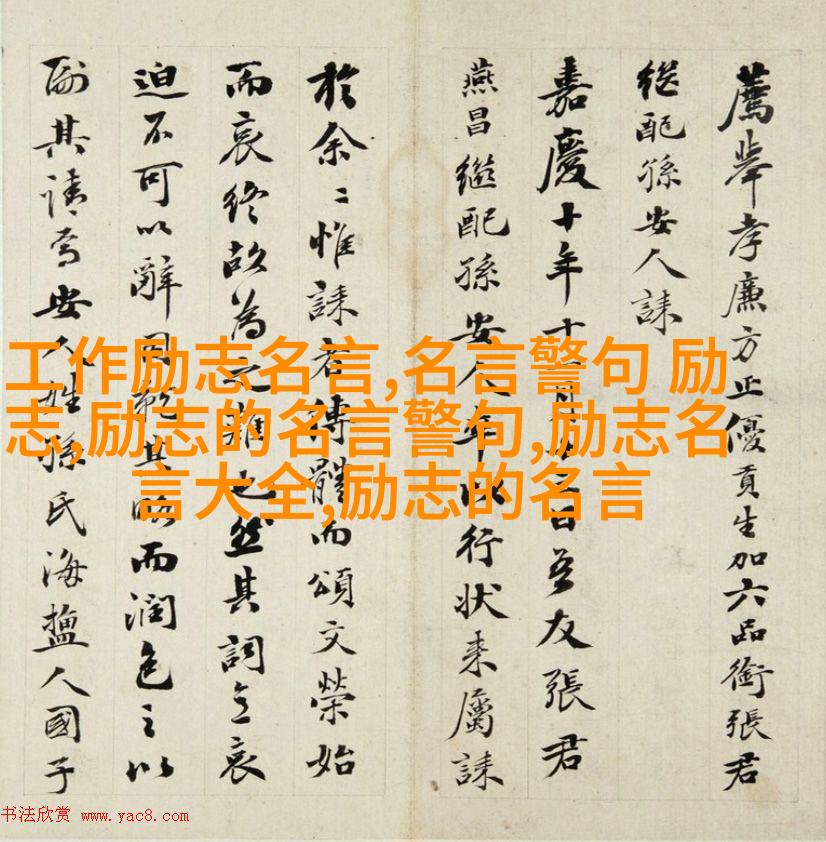 薦舉孝廉方正優貢生加六品銜張君
继配孫安人誄
嘉慶十年十
日吾友張君
燕昌继配孫安人
行状来屬誄
於余〻惟誄者傳體而頌文榮始
而哀终故為之難也然其詞立哀
迫不可以辭
其略而潤色之以
副其请焉安人姓孫氏海鹽人國子
工作励志名言,名言警句 励
志,励志的名言警句,励志名
言大全,励志的名言
书法欣赏 www.yac8.com